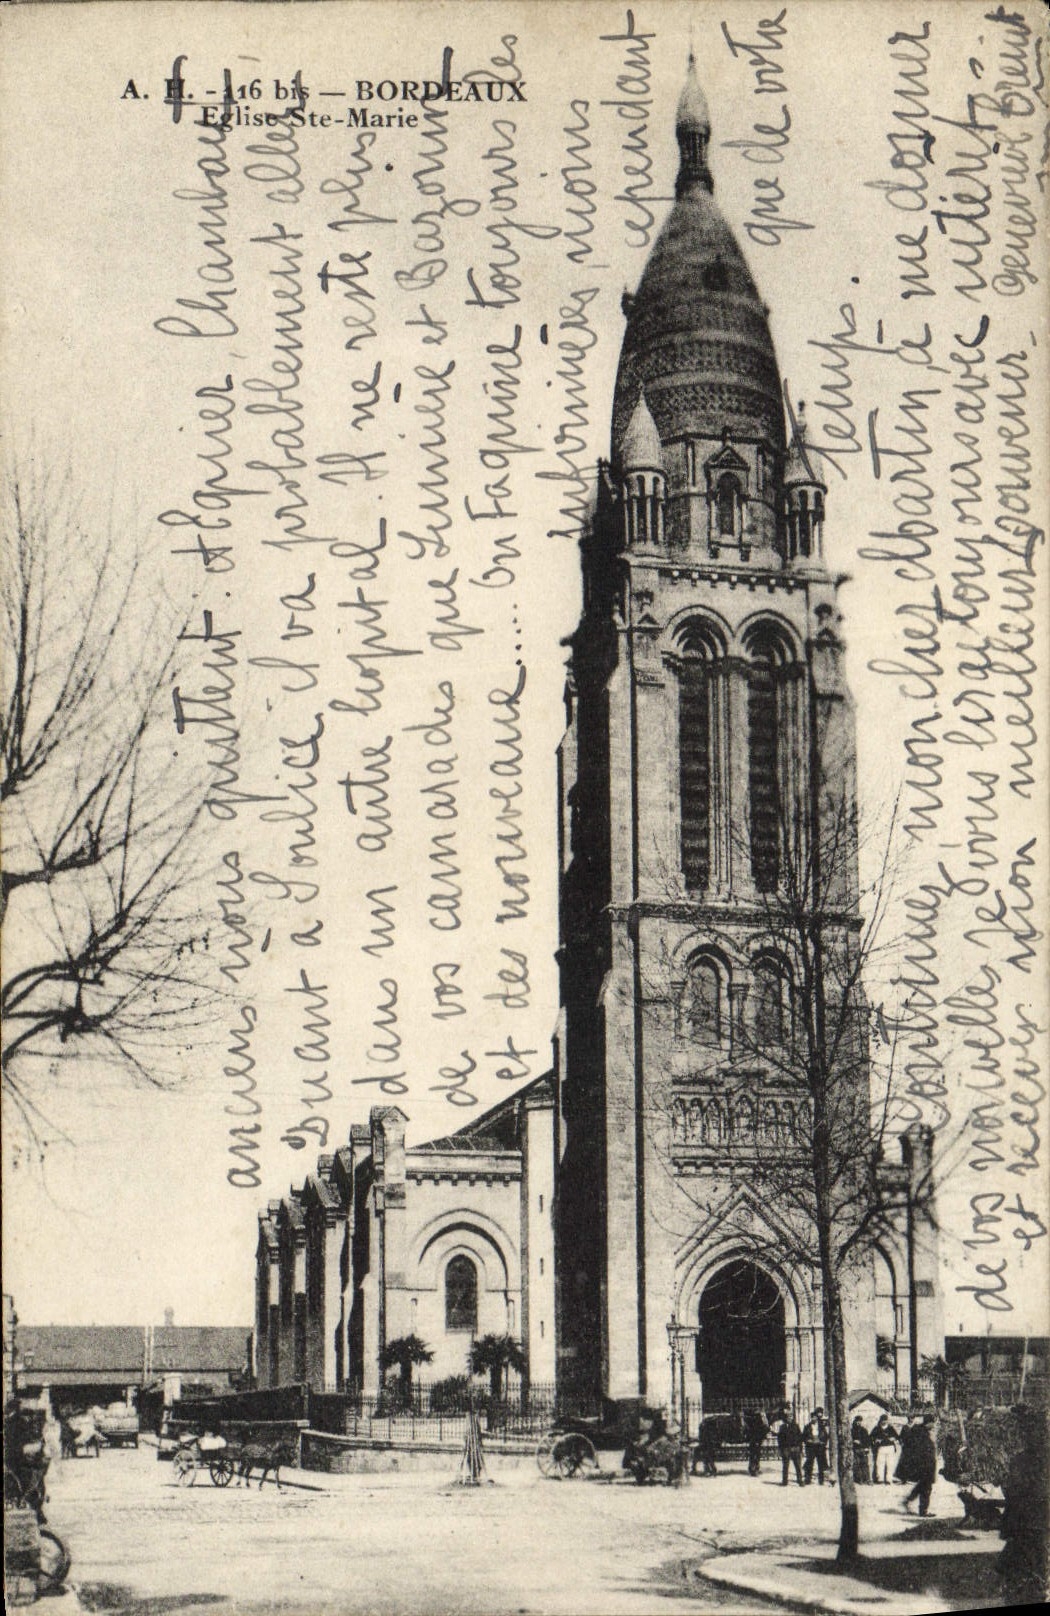 A. H. - 116 bis — BORDEAUX
Eglise Ste-Marie
anciens nous quittent. et Aquier, Chambaut
Quant à Soulice il va probablement aller
dans un autre hopital. Il ne reste plus
de vos camarades que Lumière et Bazourt
et des nouveaux.... On taquine toujours les
infirmières, moins
cependant
que de votre
temps.
Continuez, mon cher Martin, à me donner
de vos nouvelles, je vous lirai toujours avec intérêt
et recevez mon meilleur souvenir.
Genevieve